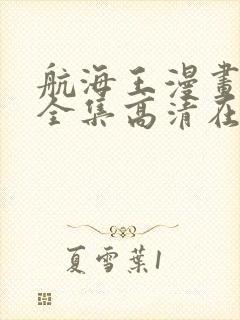 航海王漫畫
全集高清在
夏雪葉1